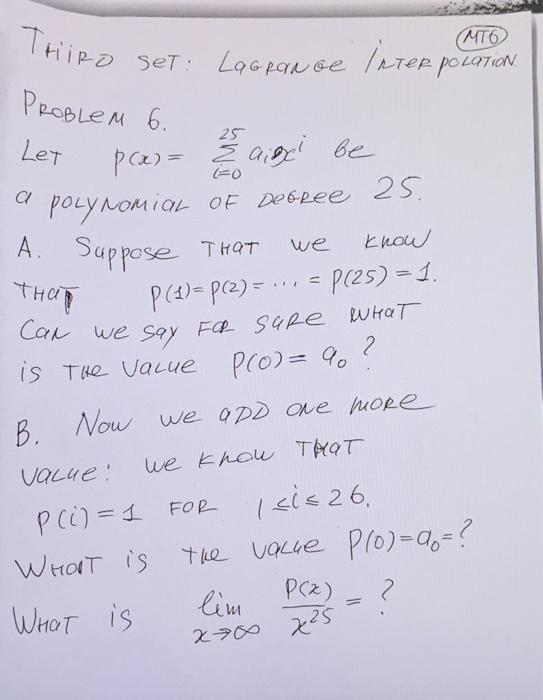 MT6
THIRD SET: LAGRANGE INTERPOLATION.
PROBLEM 6.
LET p(x) = \sum_{i=0}^{25} a_i x^i be
a POLYNOMIAL OF DEGREE 25.
A. Suppose THAT we know
THAT p(1)=p(2)= ... = p(25) = 1.
Can we say FOR SURE WHAT
is THE VALUE p(0) = a_0?
B. Now we ADD ONE MORE
VALUE: we know THAT
p(i) = 1 FOR 1 ≤ i ≤ 26.
WHAT is THE VALUE p(0)=a_0=?
WHAT is lim_{x→∞} \frac{p(x)}{x^{25}} = ?